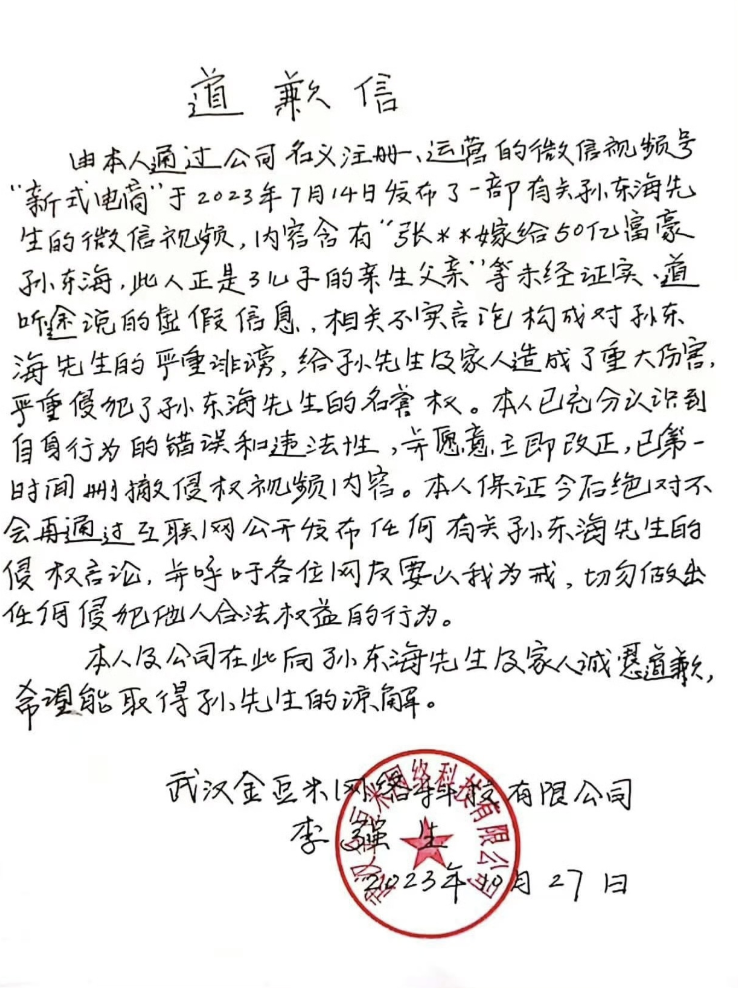 道歉信
由本人通过公司名义注册、运营的微信视频号
“新式电商”于2023年7月14日发布了一部有关孙东海先
生的微信视频，内容含有“张**嫁给50亿富豪
孙东海，此人正是3儿子的亲生父亲”等未经证实、道
听途说的虚假信息，相关不实言论构成对孙东
海先生的严重诽谤，给孙先生及家人造成了重大伤害，
严重侵犯了孙东海先生的名誉权。本人已充分认识到
自身行为的错误和违法性，并愿意立即改正，已第一
时间删撤侵权视频内容。本人保证今后绝对不
会再通过互联网公开发布任何有关孙东海先生的
侵权言论，并呼吁各位网友要以我为戒，切勿做出
任何侵犯他人合法权益的行为。
本人及公司在此向孙东海先生及家人诚恳道歉，
希望能取得孙先生的谅解。
武汉金豆米网络科技有限公司
李强生
2023年10月27日
武汉金豆米网络科技有限公司